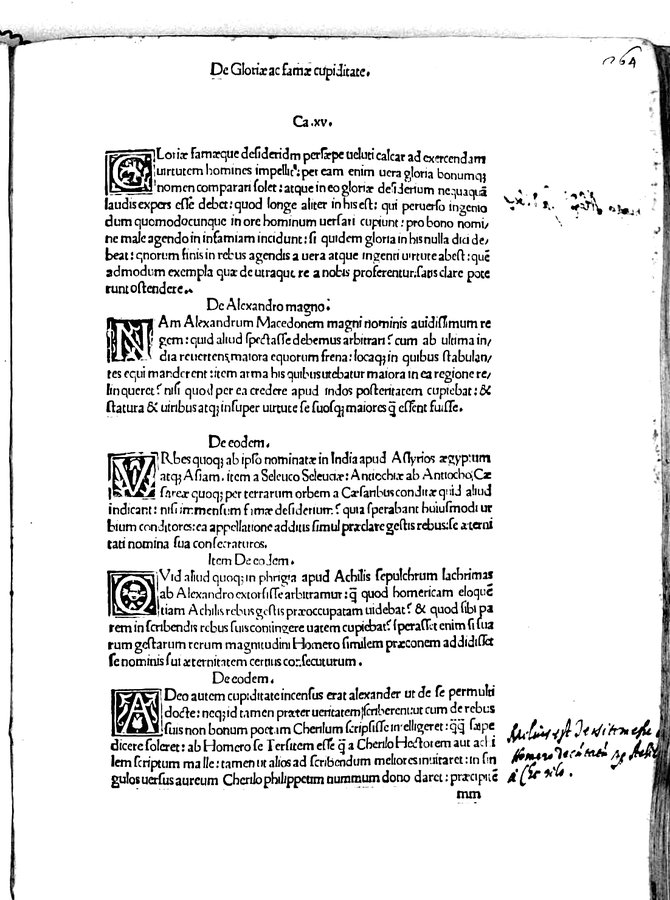 264
De Gloriæ ac famæ cupiditate.
Ca.xv.
GLoriæ famæque desideridm persæpe ueluti calcar ad exercendam
uirtutem homines impellit: per eam enim uera gloria bonumq;
nomen comparari solet: atque in eo gloriæ desiderium nequaquã
laudis expers esse debet: quod longe aliter in his est: qui peruerso ingenio
dum quomodocunque in ore hominum uersari cupiunt: pro bono nomi/
ne male agendo in infamiam incidunt: si quidem gloria in his nulla dici de/
beat: quorum finis in rebus agendis a uera atque ingenti uirtute abest: quẽ
admodum exempla quæ de utraque re a nobis proferentur, satis clare pote
runt ostendere.
De Alexandro magno.
NAm Alexandrum Macedonem magni nominis auidissimum re
gem: quid aliud spectasse debemus arbitrari? cum ab ultima in/
dia reuertens, maiora equorum frena: locaq; in quibus stabulan/
tes equi manderent: item arma his quibus utebatur maiora in ea regione re/
linqueret? nisi quod per ea credere apud indos posteritatem cupiebat: &
statura & uiribus atq; insuper uirtute se suosq; maiores q̃ essent fuisse.
De eodem.
VRbes quoq; ab ipso nominatæ in India apud Assyrios ægyptum
atq; Asiam. item a Seleuco Seleuciæ: Antiochiæ ab Antiocho, Cæ
sareæ quoq; per terrarum orbem a Cæsaribus conditæ quid aliud
indicant: nisi immensum famæ desiderium? quia sperabant huiusmodi ur
bium conditores: ea appellatione additis simul præclare gestis rebus: se æterni
tati nomina sua consecraturos.
Item De eodem.
QVid aliud quoq; in phrigia apud Achilis sepulchrum lachrimas
ab Alexandro extorsisse arbitramur: q̃ quod homericam eloquẽ
tiam Achilis rebus gestis præoccupatam uidebat? & quod sibi pa
rem in scribendis rebus suis contingere uatem cupiebat? sperasset enim si sua
rum gestarum rerum magnitudini Homero similem præconem addidisset
se nominis sui æternitatem certius consecuturum.
De eodem.
ADeo autem cupiditate incensus erat alexander ut de se permulti
docte: neq; id tamen præter ueritatem scriberent: ut cum de rebus
suis non bonum poetam Cherilum scripsisse intelligeret: q̃q̃ sæpe
dicere soleret: ab Homero se Tersitem esse q̃ a Cherilo Hectorem aut achi
lem scriptum malle: tamen ut alios ad scribendum meliores inuitaret: in sin
gulos uersus aureum Cherilo philippeum nummum dono daret: præcipiẽ
mm